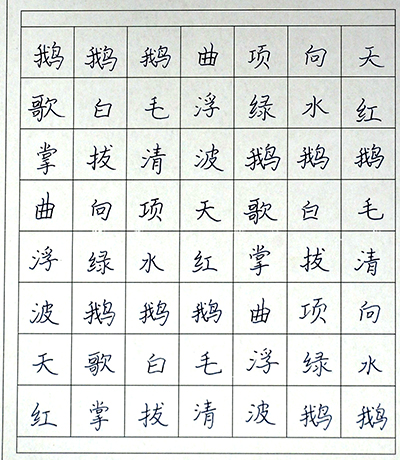 鹅鹅鹅曲项向天
歌白毛浮绿水红
掌拔清波鹅鹅鹅
曲向项天歌白毛
浮绿水红掌拔清
波鹅鹅鹅曲项向
天歌白毛浮绿水
红掌拔清波鹅鹅